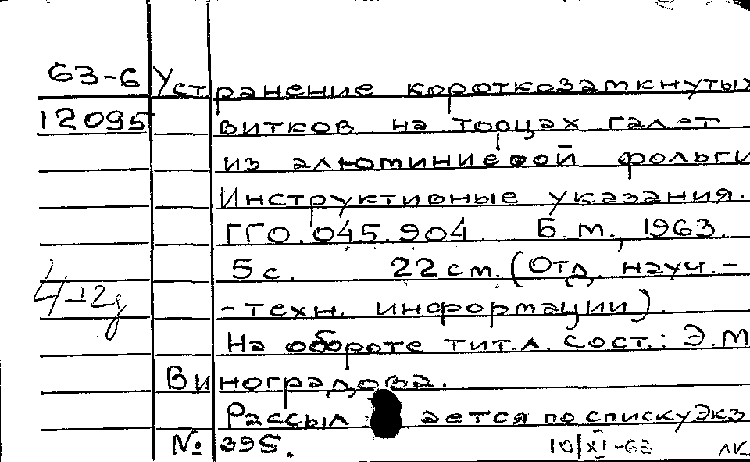 63-6 Устранение короткозамкнутых
12095 витков на торцах галет
из алюминиевой фольги
Инструктивные указания.
ГГО.045.904 Б.м., 1963.
5с. 22см. (Отд. науч.-
-техн. информации).
На обороте тит.л. сост.: Э.М
Виноградова.
Рассылается по списку Экз
№ 395. 10/XI-63